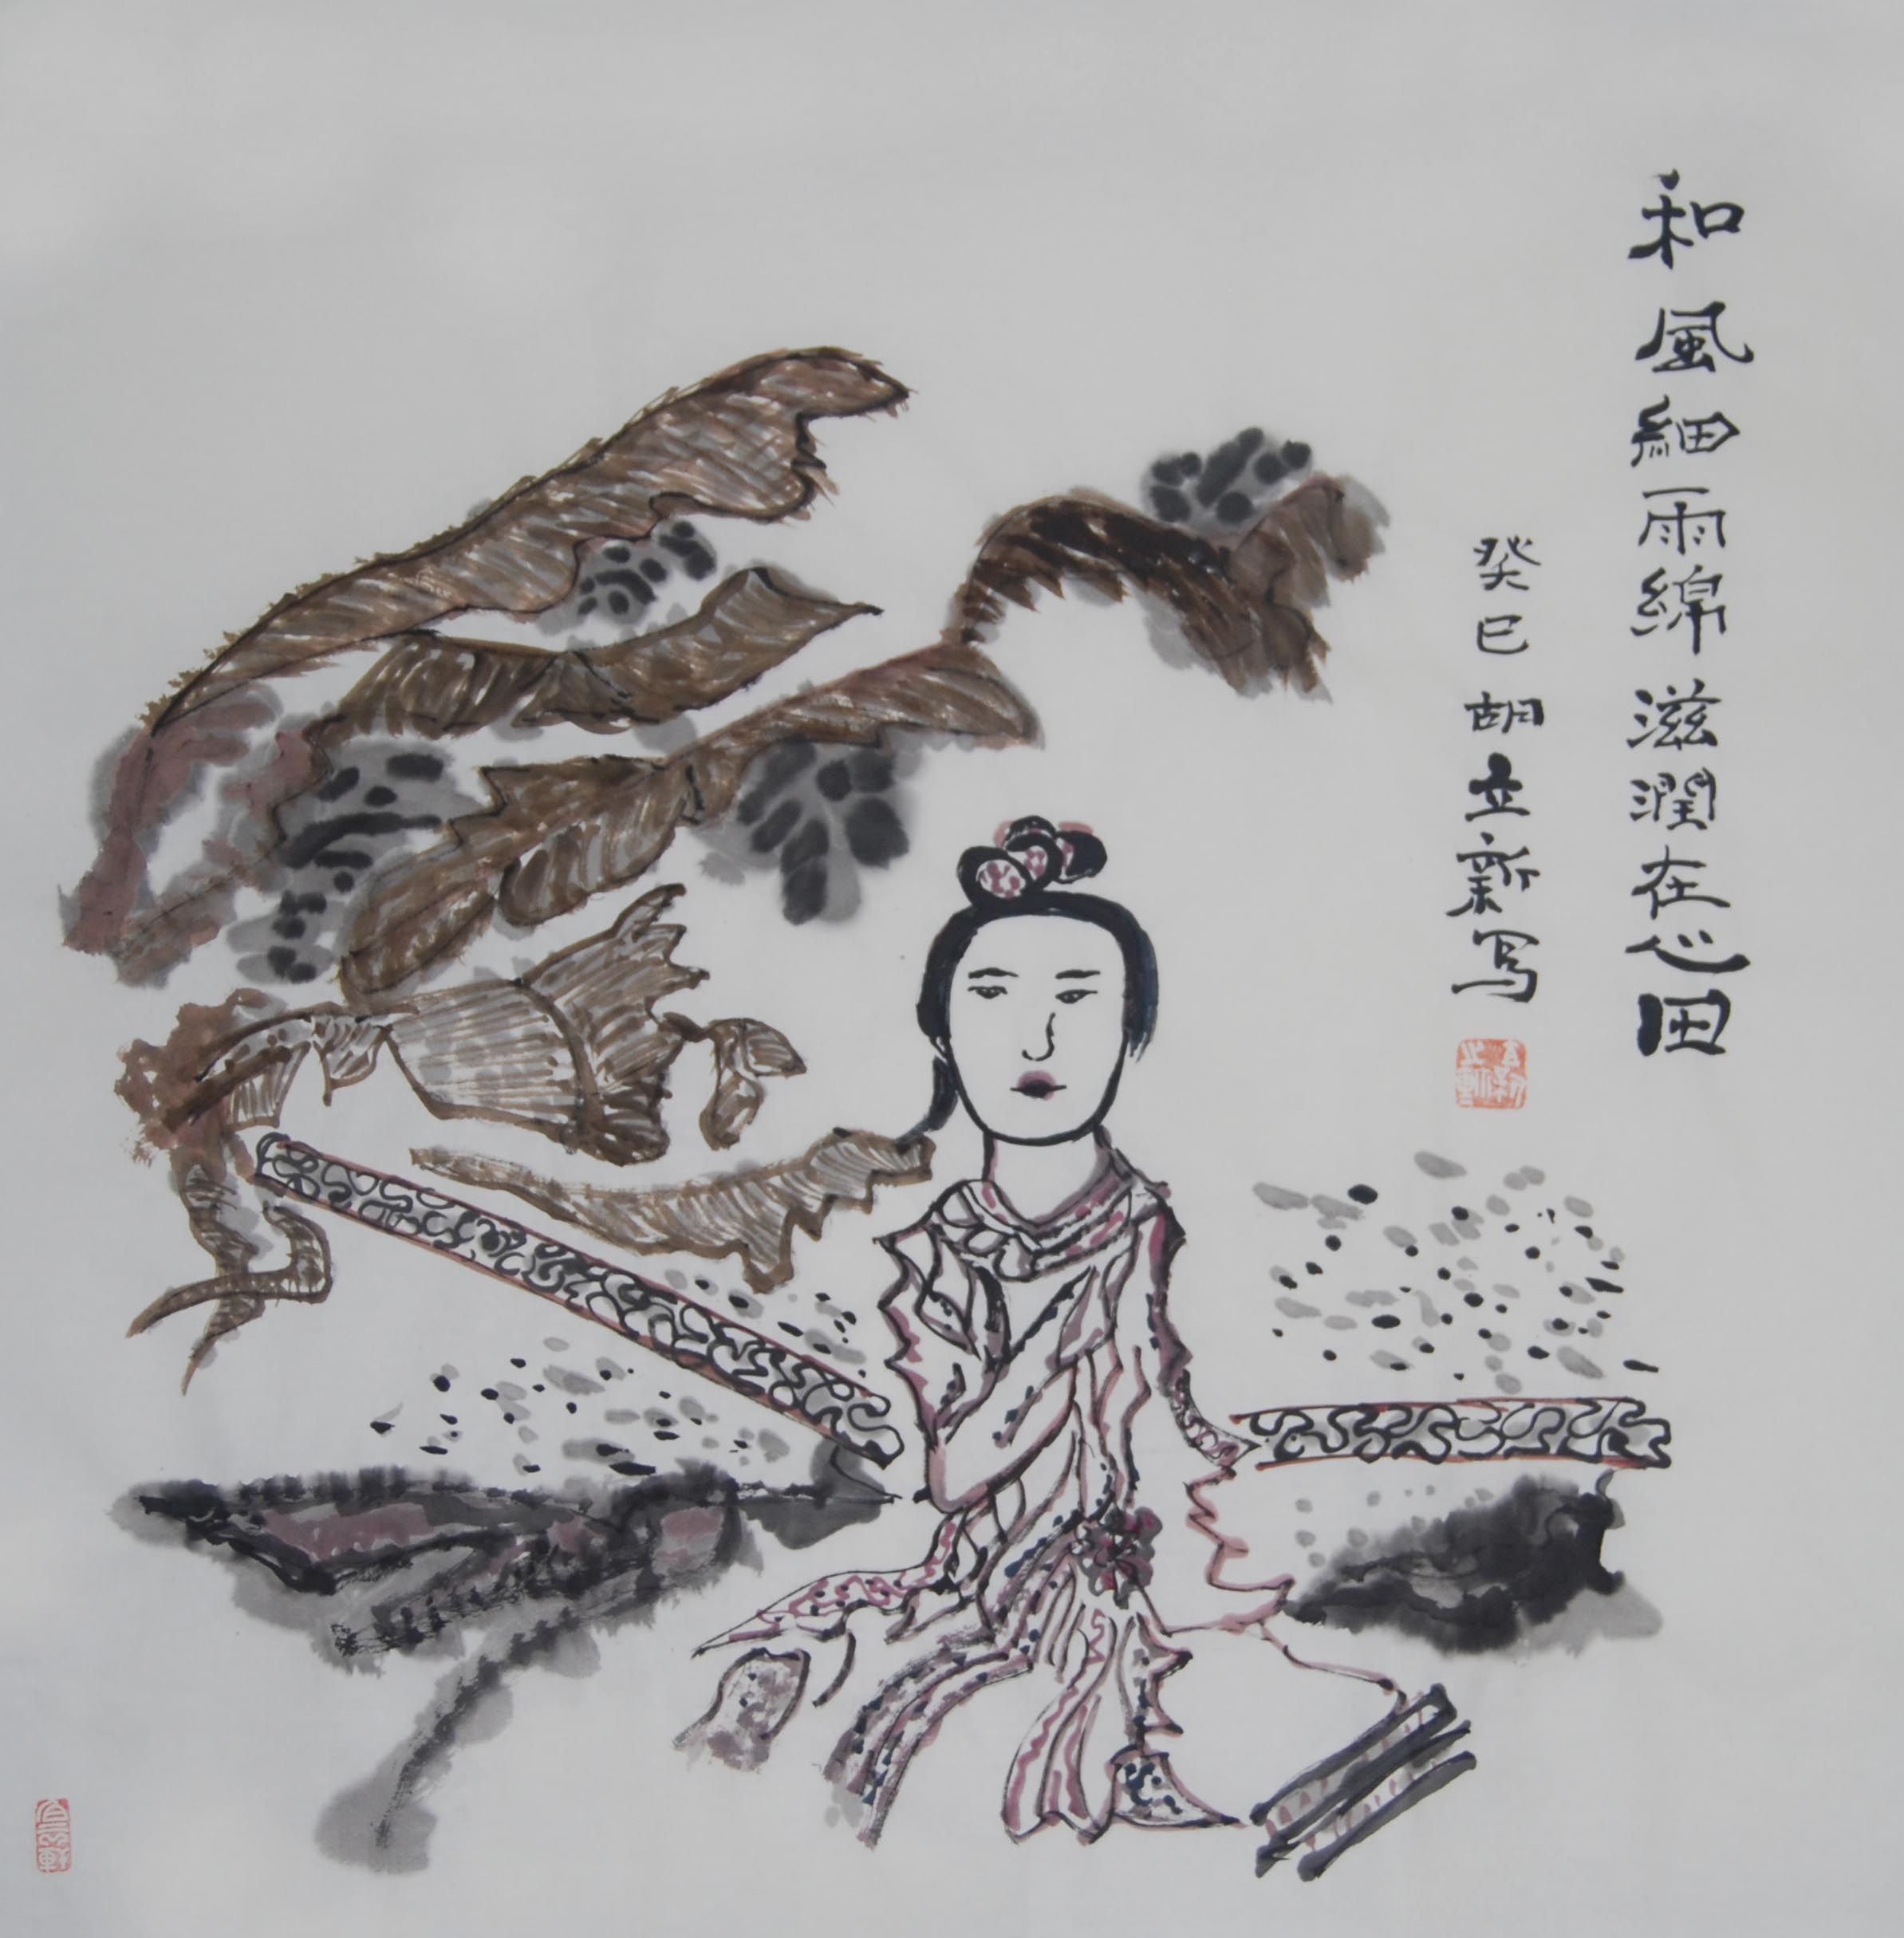 和風細雨綿滋潤在心田
癸巳胡立新写